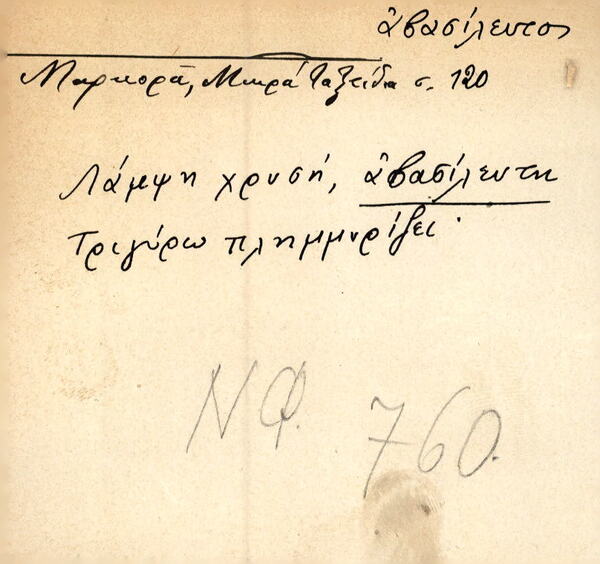 ἀβασίλευτος
Μαρκορᾶ, Μικρά Ταξείδια σ. 120
Λάμψη χρυσή, ἀβασίλευτη
Τριγύρω πλημμυρίζει·
ΝΦ. 760.